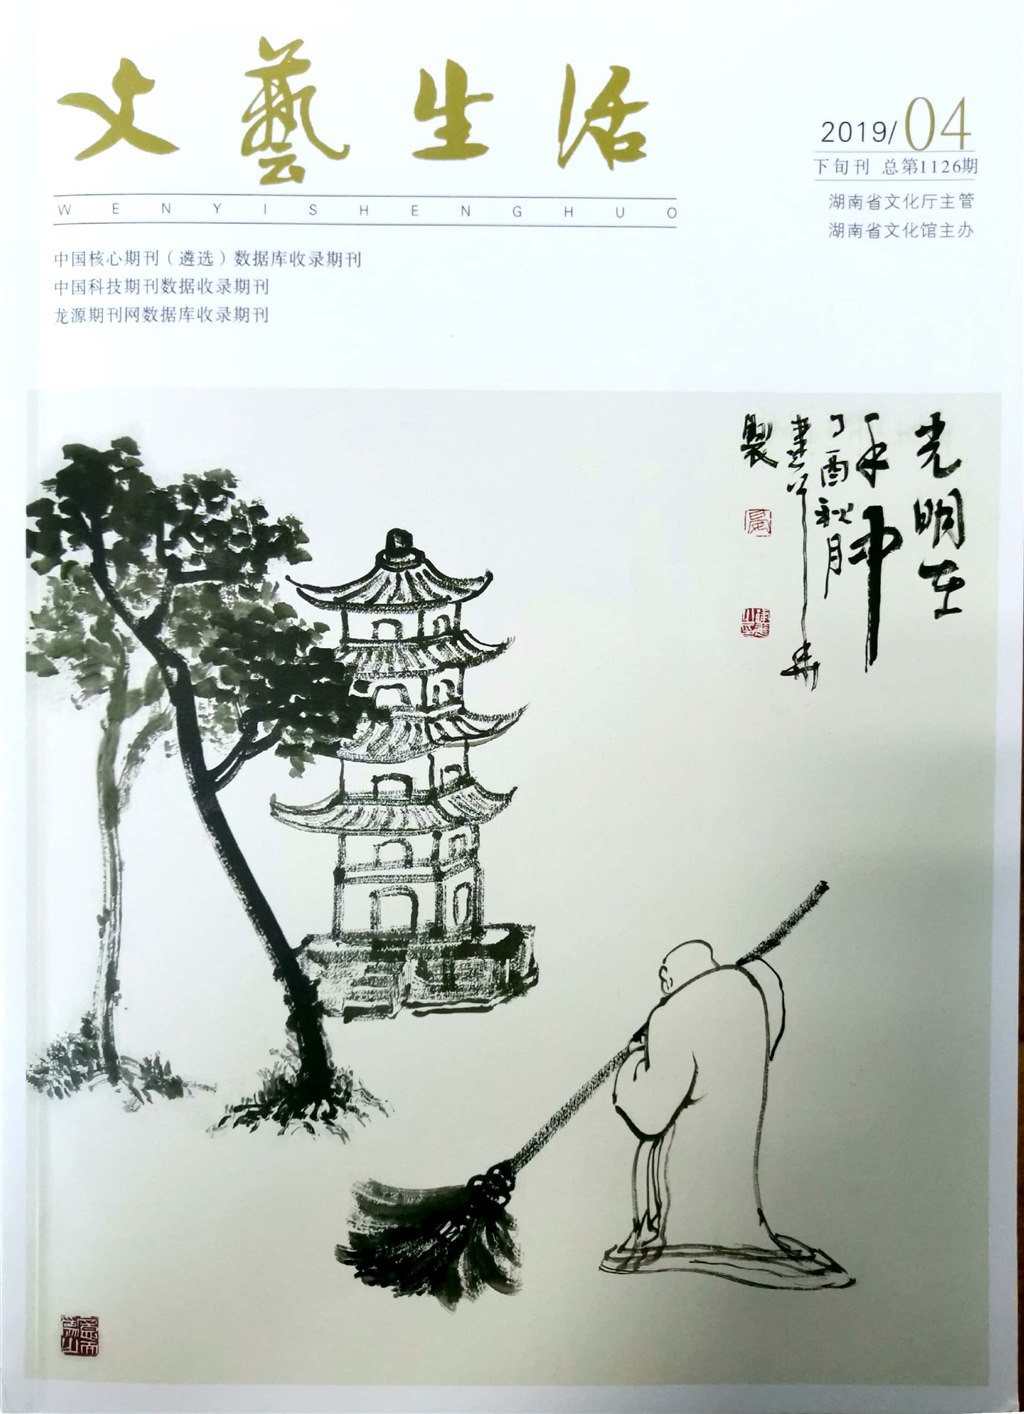 文藝生活
WENYISHENGHUO
2019/04
下旬刊 总第1126期
湖南省文化厅主管
湖南省文化馆主办
中国核心期刊（遴选）数据库收录期刊
中国科技期刊数据收录期刊
龙源期刊网数据库收录期刊
光明在
手中
丁酉秋月
製